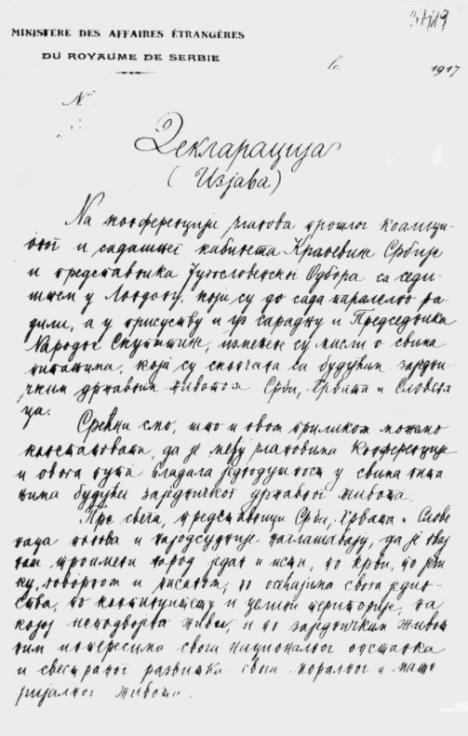 MINISTERE DES AFFAIRES ÉTRANGÈRES
DU ROYAUME DE SERBIE
le 1917
N°
Декларација
(Изјава)
На конференцији чланова прошлог коалици-
оног и садашњег кабинета Краљевине Србије
и представника Југословенског Одбора са седи-
штем у Лондону, који су до сада паралелно ра-
дили, а у присуству и уз сарадњу и Председника
Народне Скупштине, измењене су мисли о свима
питањима, која су скопчана са будућим заједни-
чким државним животом Срба, Хрвата и Словена-
ца.
Срећни смо, што и овом приликом можемо
констатовати, да је међу члановима Конференције
и овога пута владала једнодушност у свима пита
њима будућег заједничког државног живота.
Пре свега, представници Срба, Хрвата и Слове
наца понова и најодсудније наглашавају, да је овај
наш троимени народ један и исти, по крви, по јези
ку, говорном и писаном, по осећајима свога једин-
ства, по континуитету и целини територије, на
којој неподвојено живи, и по заједничким живот
ним интересима свога националног опстанка
и свестраног развитка свога моралног и мате
ријалног живота.